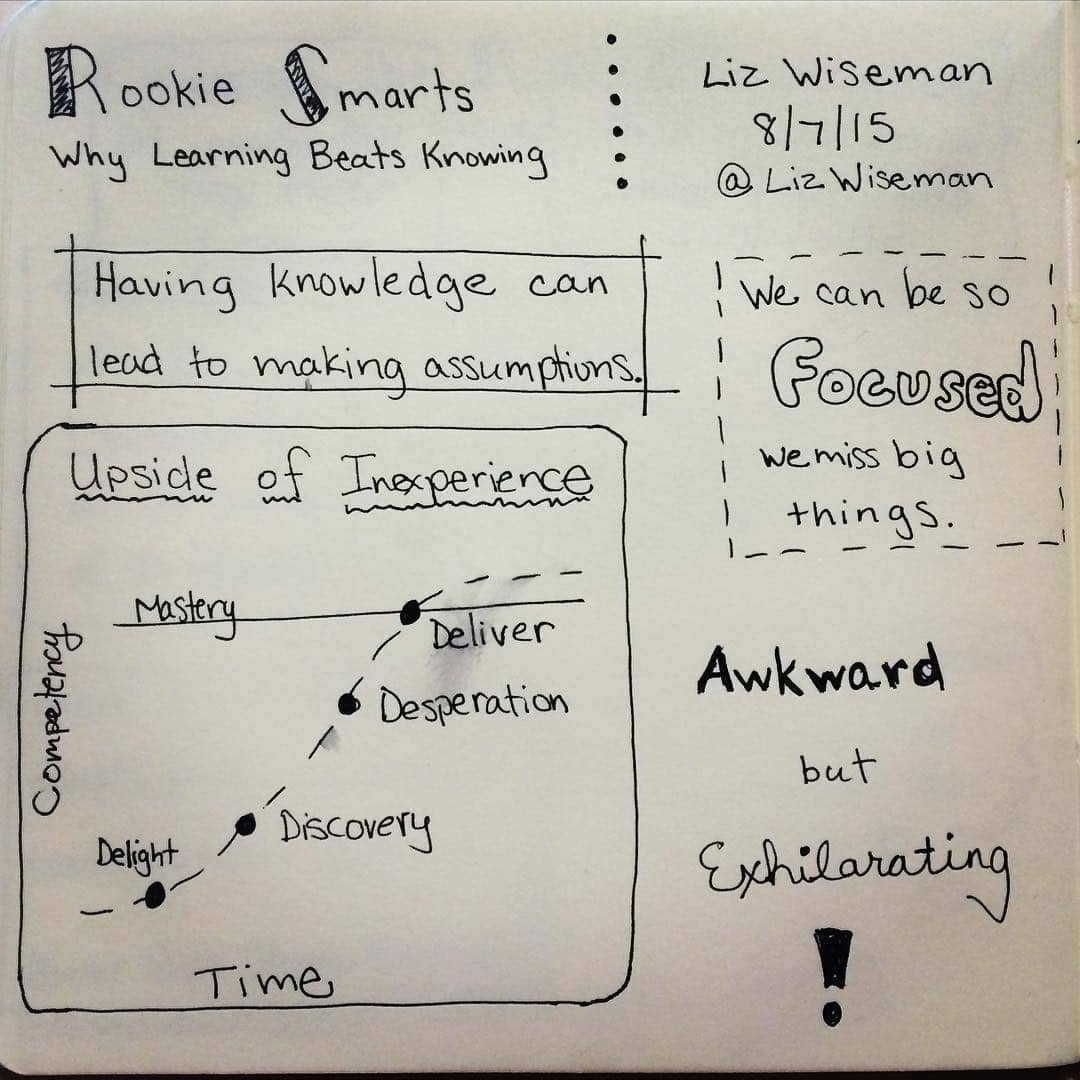 Rookie Smarts
Why Learning Beats Knowing
Liz Wiseman
8/7/15
@LizWiseman
Having knowledge can
lead to making assumptions.
We can be so
Focused
we miss big
things.
Upside of Inexperience
Mastery
Deliver
Desperation
Discovery
Delight
Competency
Time
Awkward
but
Exhilarating
!